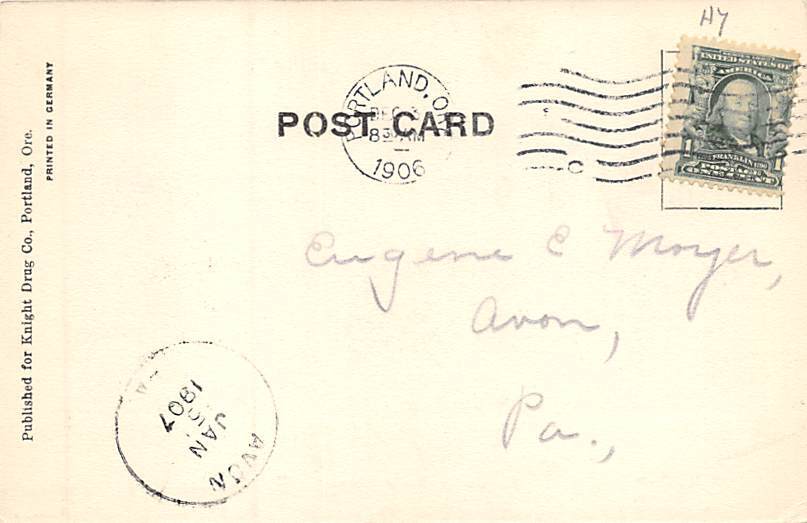 H7
UNITED STATES OF
AMERICA
FRANKLIN
POSTAGE
PORTLAND, OR
DEC 3
8 30 AM
1906
POST CARD
Eugene E Moyer,
Avon,
Pa.,
AVON
JAN
1907
Published for Knight Drug Co., Portland, Ore.
PRINTED IN GERMANY